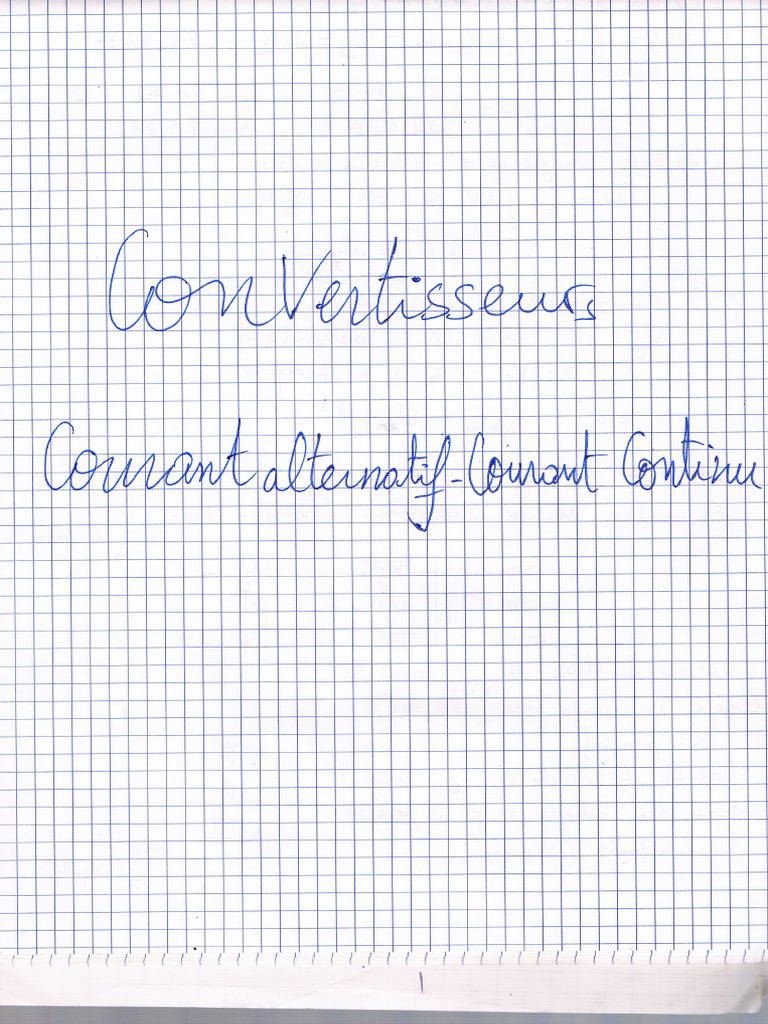 ConVertisseurs
Courant alternatif - Courant Continu